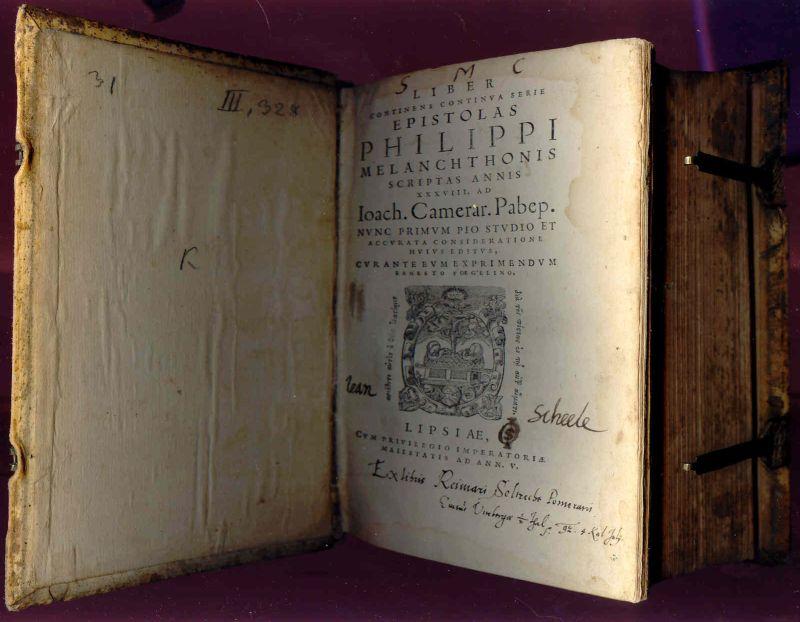 31
III, 328
R
S M C
LIBER
CONTINENS CONTINVA SERIE
EPISTOLAS
PHILIPPI
MELANCHTHONIS
SCRIPTAS ANNIS
XXXVIII. AD
Ioach. Camerar. Pabep.
NVNC PRIMVM PIO STVDIO ET
ACCVRATA CONSIDERATIONE
HVIVS EDITVS,
CVRANTE EVM EXPRIMENDVM
ERNESTO VOEGELINO.
Jean
Scheele
LIPSIAE,
CVM PRIVILEGIO IMPERATORIÆ
MAIESTATIS AD ANN. V.
Ex libris Reimari Pomerani